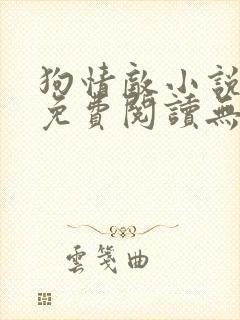 狗情敵小說
免費閱讀無
雲箋曲